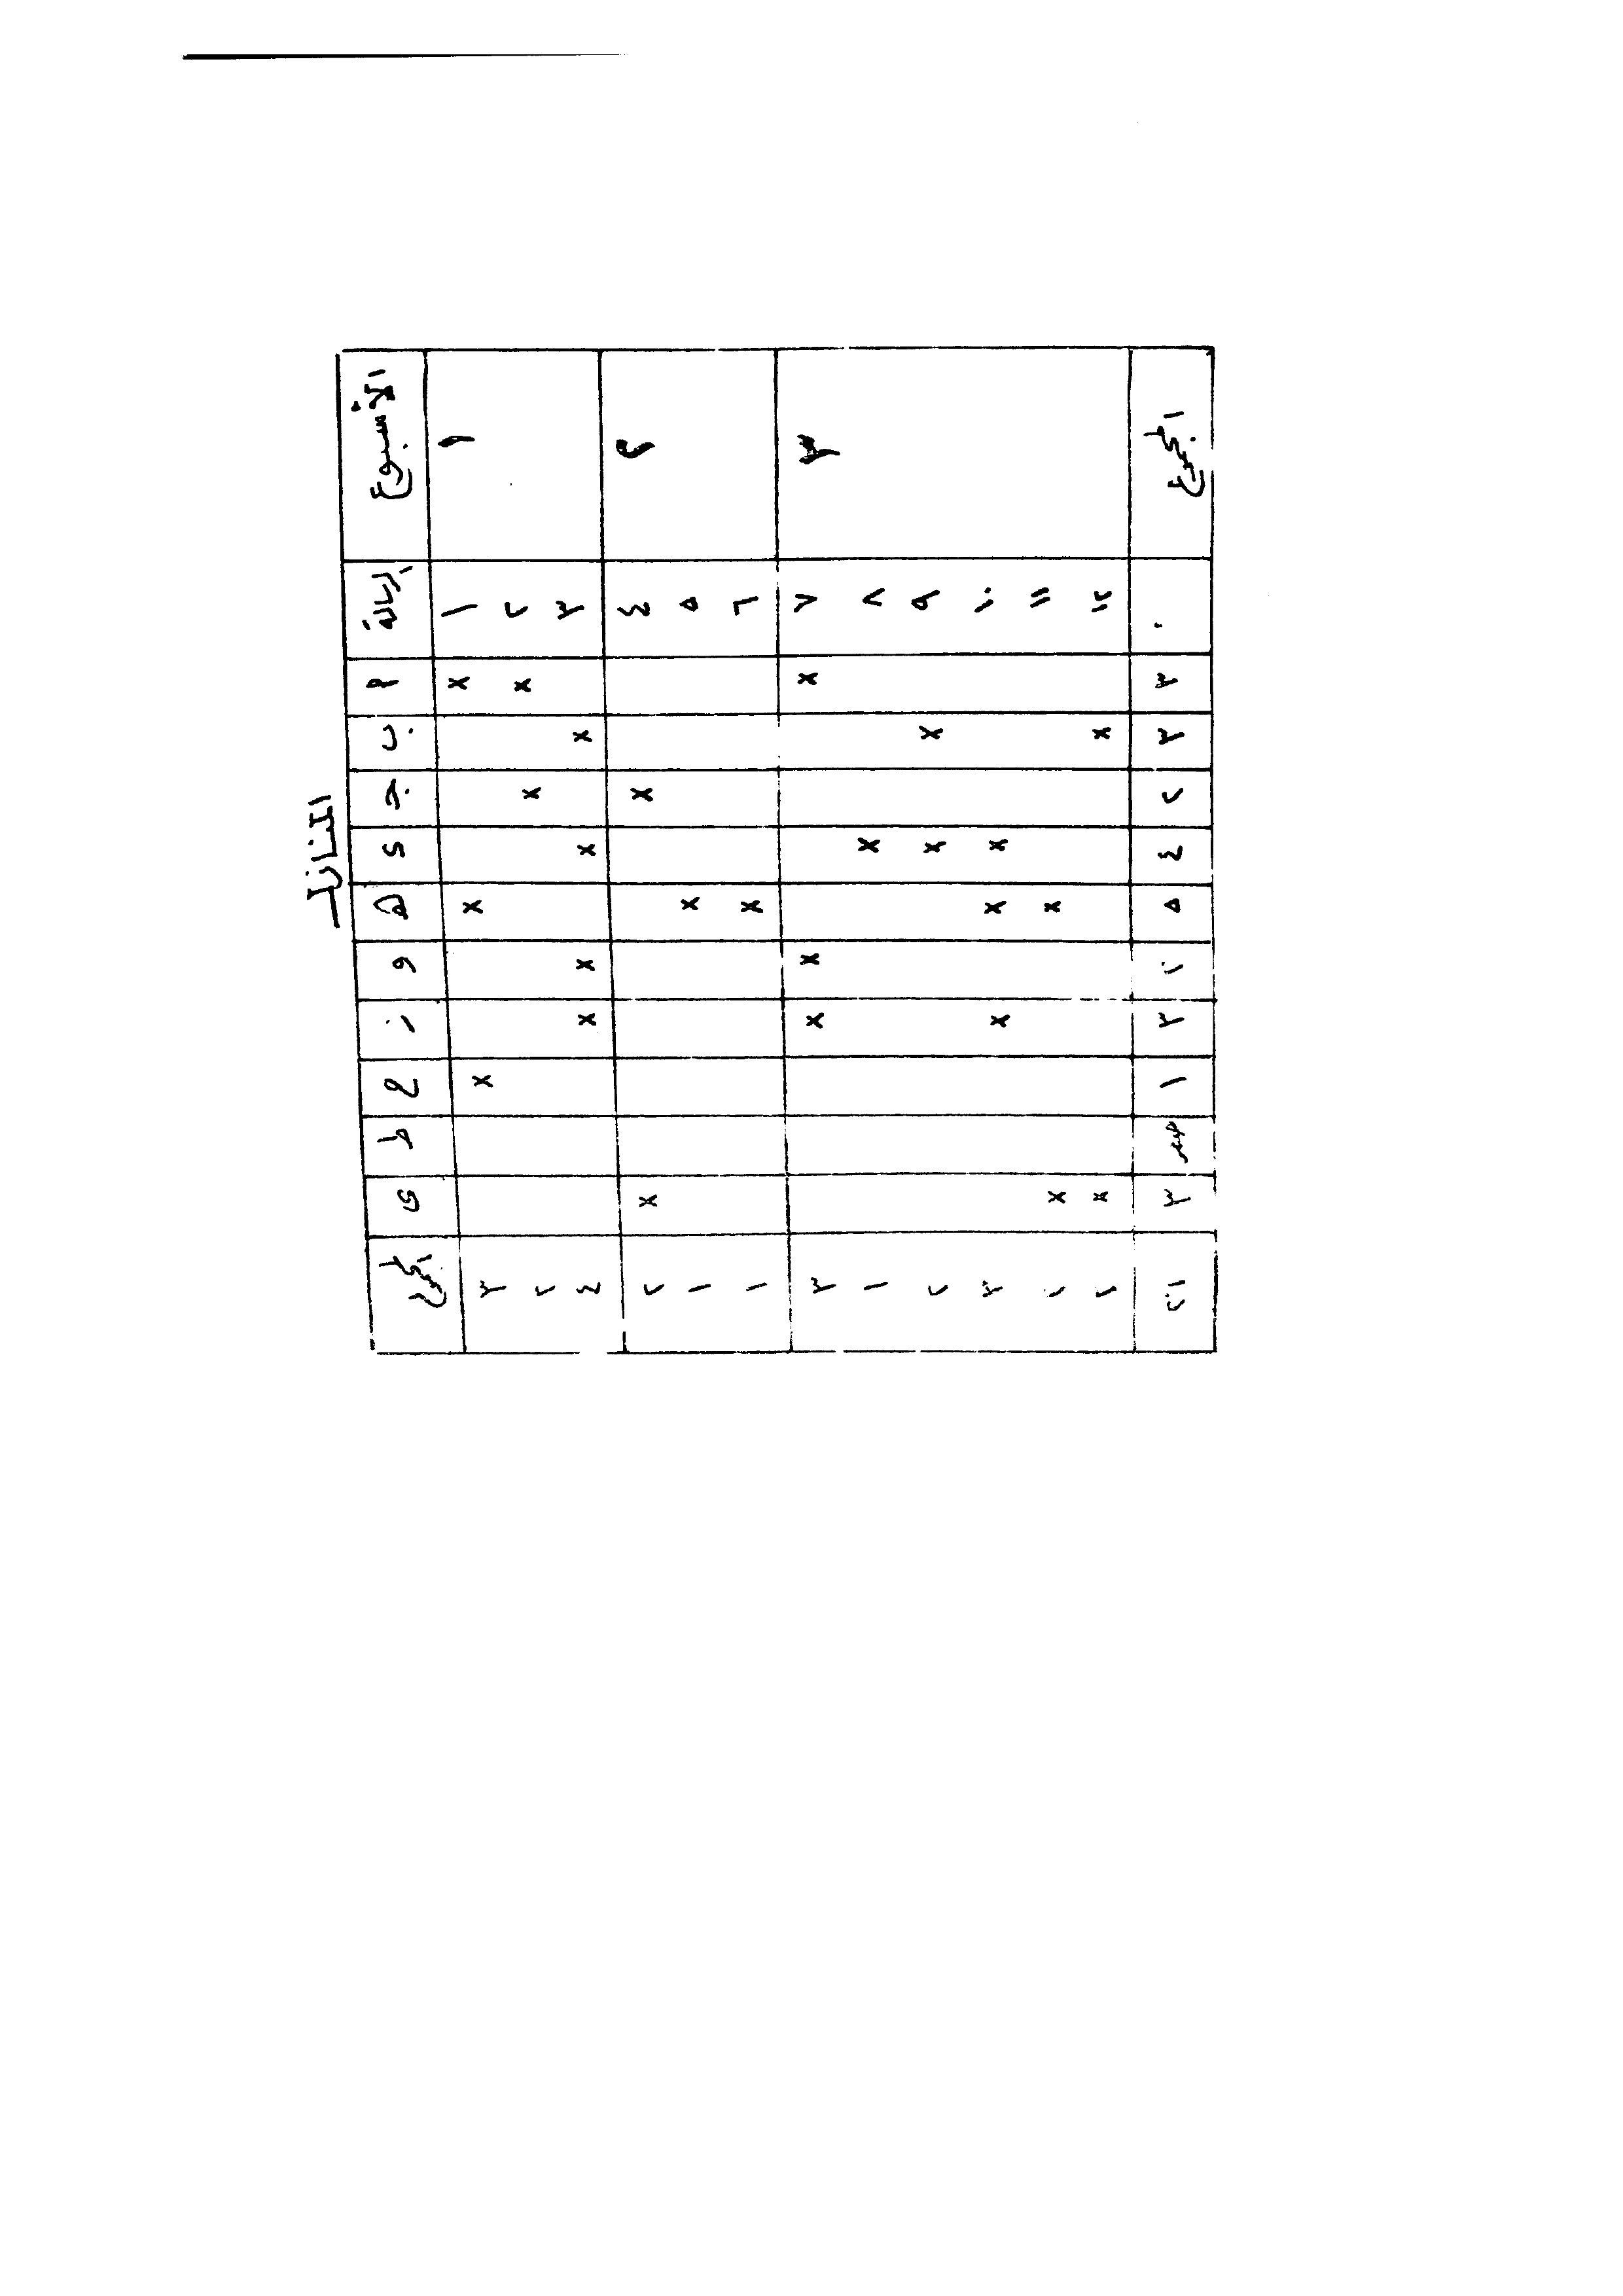 المنازل
الأسبوع الرسالة أ ب ج د هـ و ز ح ط ي المجموع
١ ١ x x x ٣
٢ x x ٢
٣ x x x x ٤
٢ ٤ x x ٢
٥ x ١
٦ x ١
٣ ٧ x x x ٣
٨ x ١
٩ x x ٢
١٠ x x x ٣
١١ x x ٢
١٢ x x ٢
المجموع ٣ ٣ ٢ ٤ ٥ ٢ ٣ ١ صفر ٣